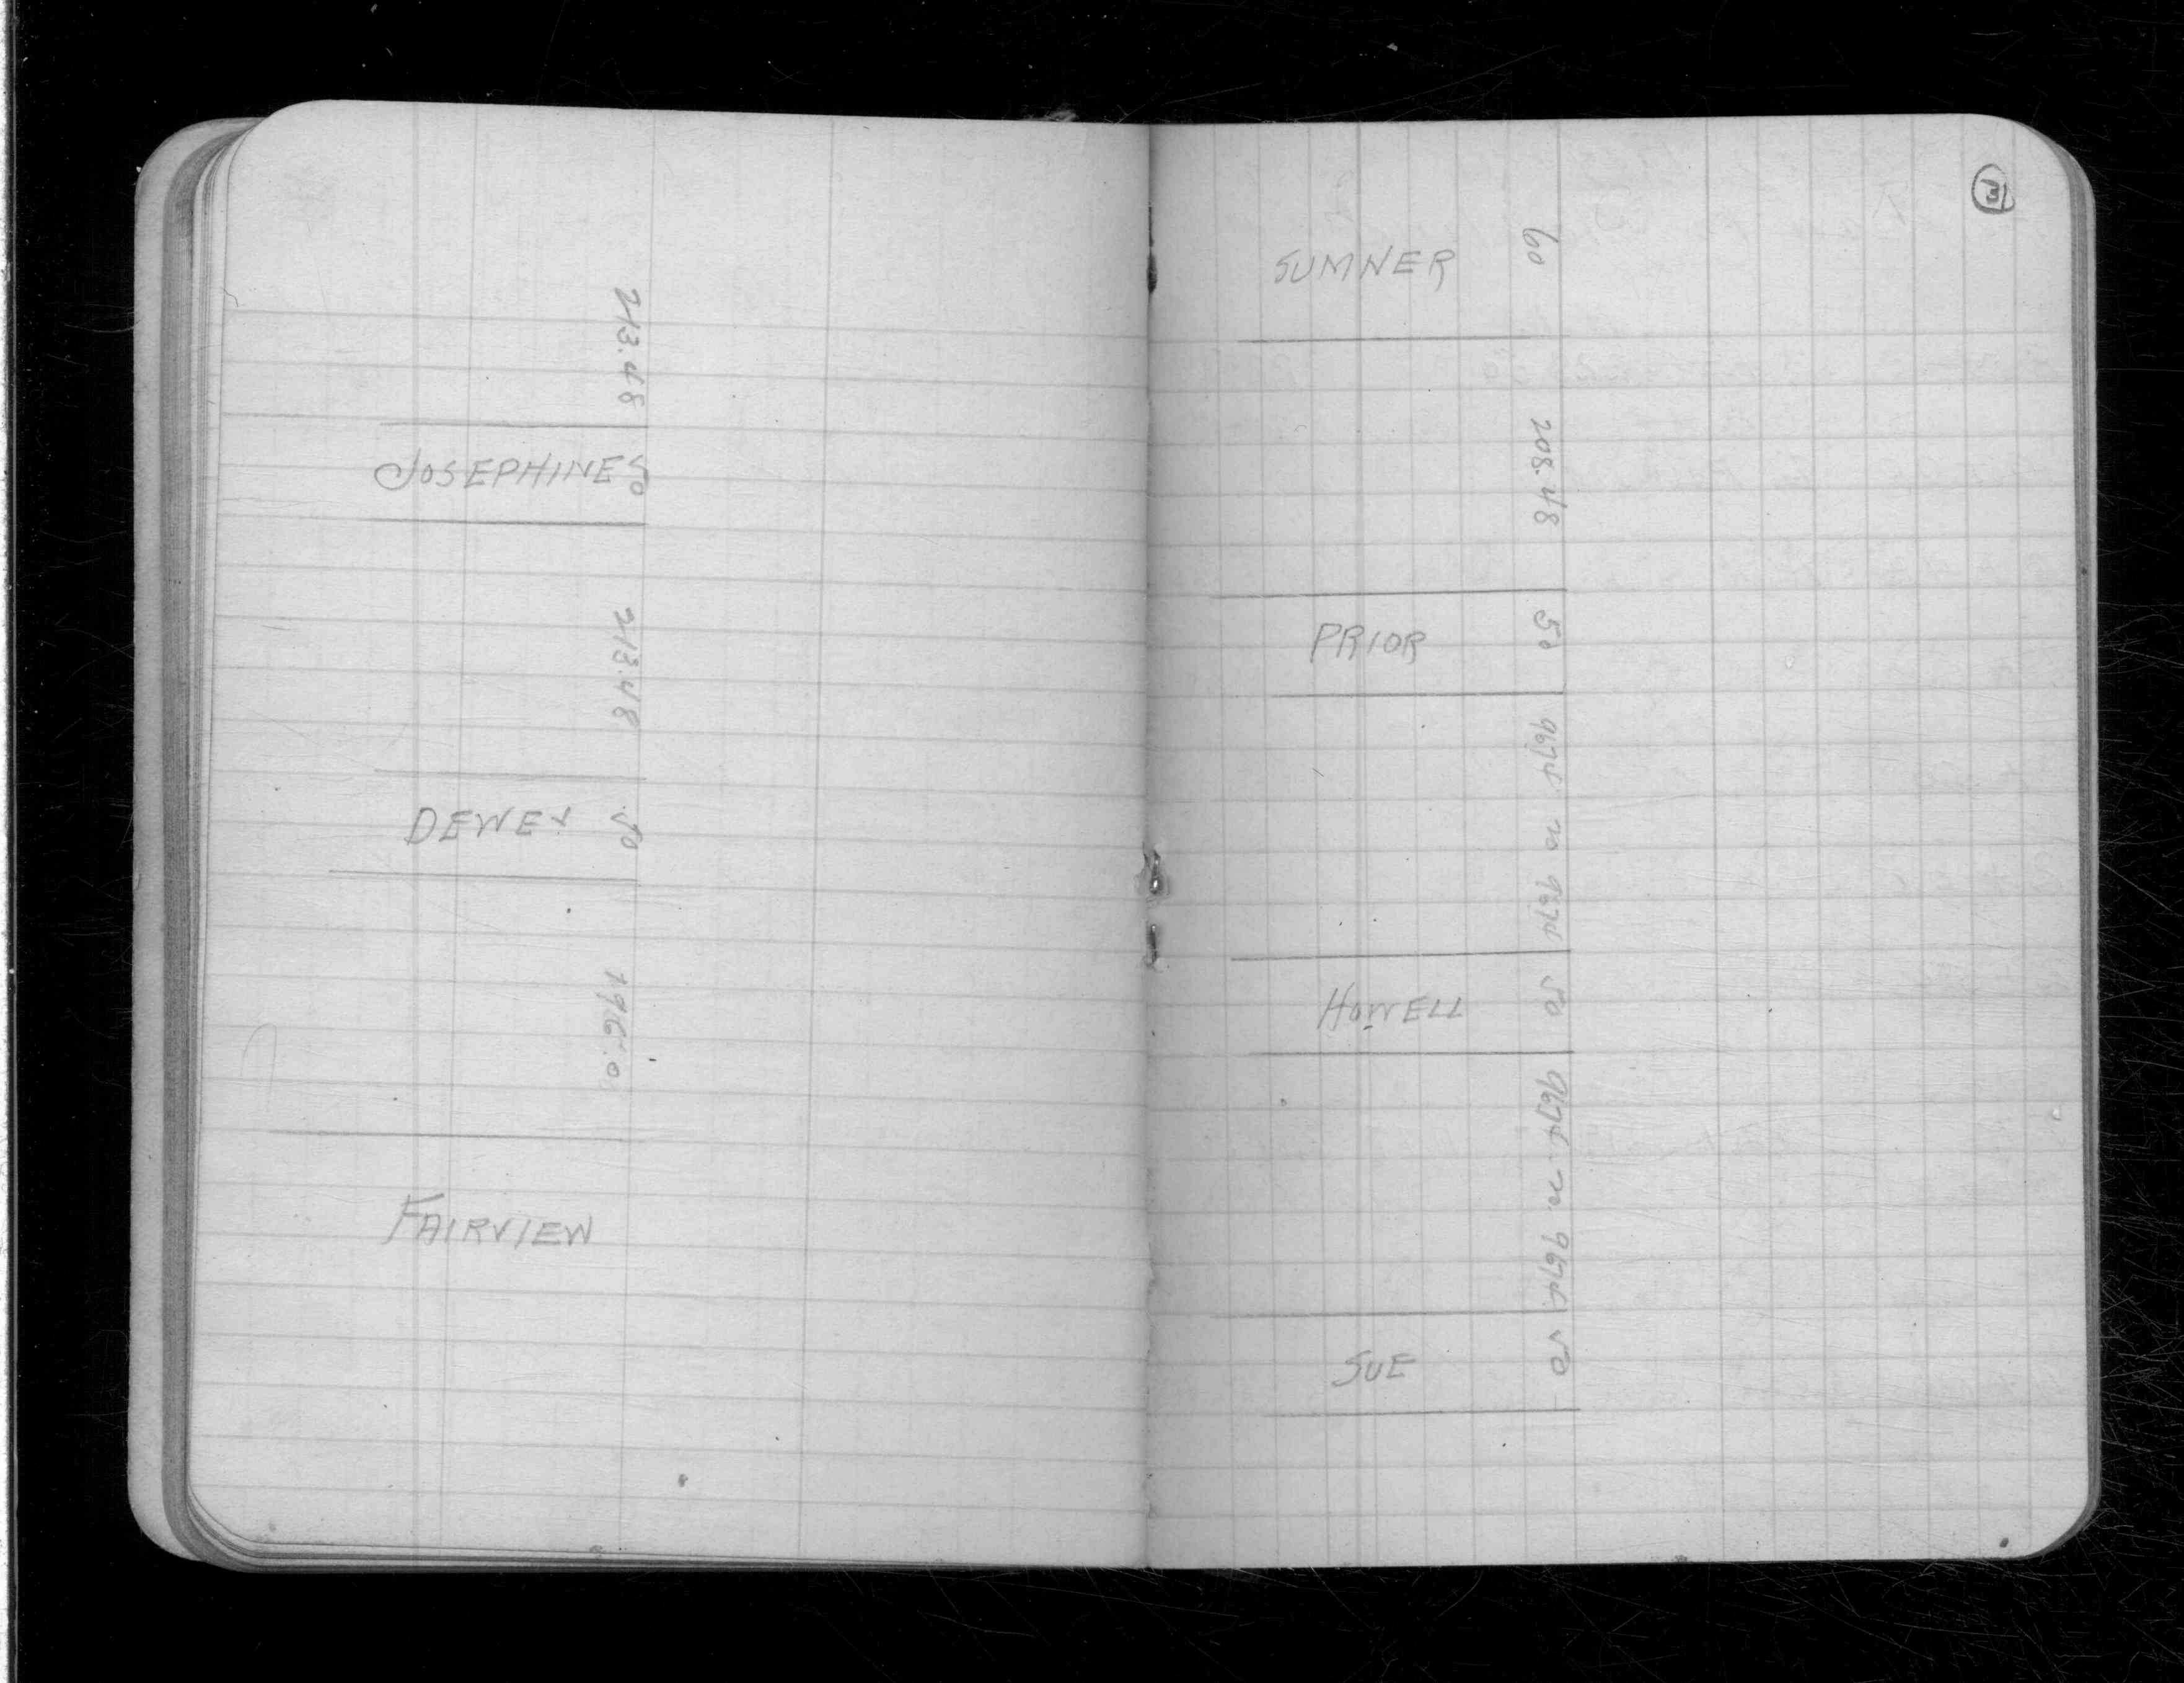 213.48
JOSEPHINE 50
213.48
DEWEY 50
FAIRVIEW
3
SUMNER 60
208.48
PRIOR 50
9674 20 9674
HOWELL 50
9674 20 9674
SUE 50